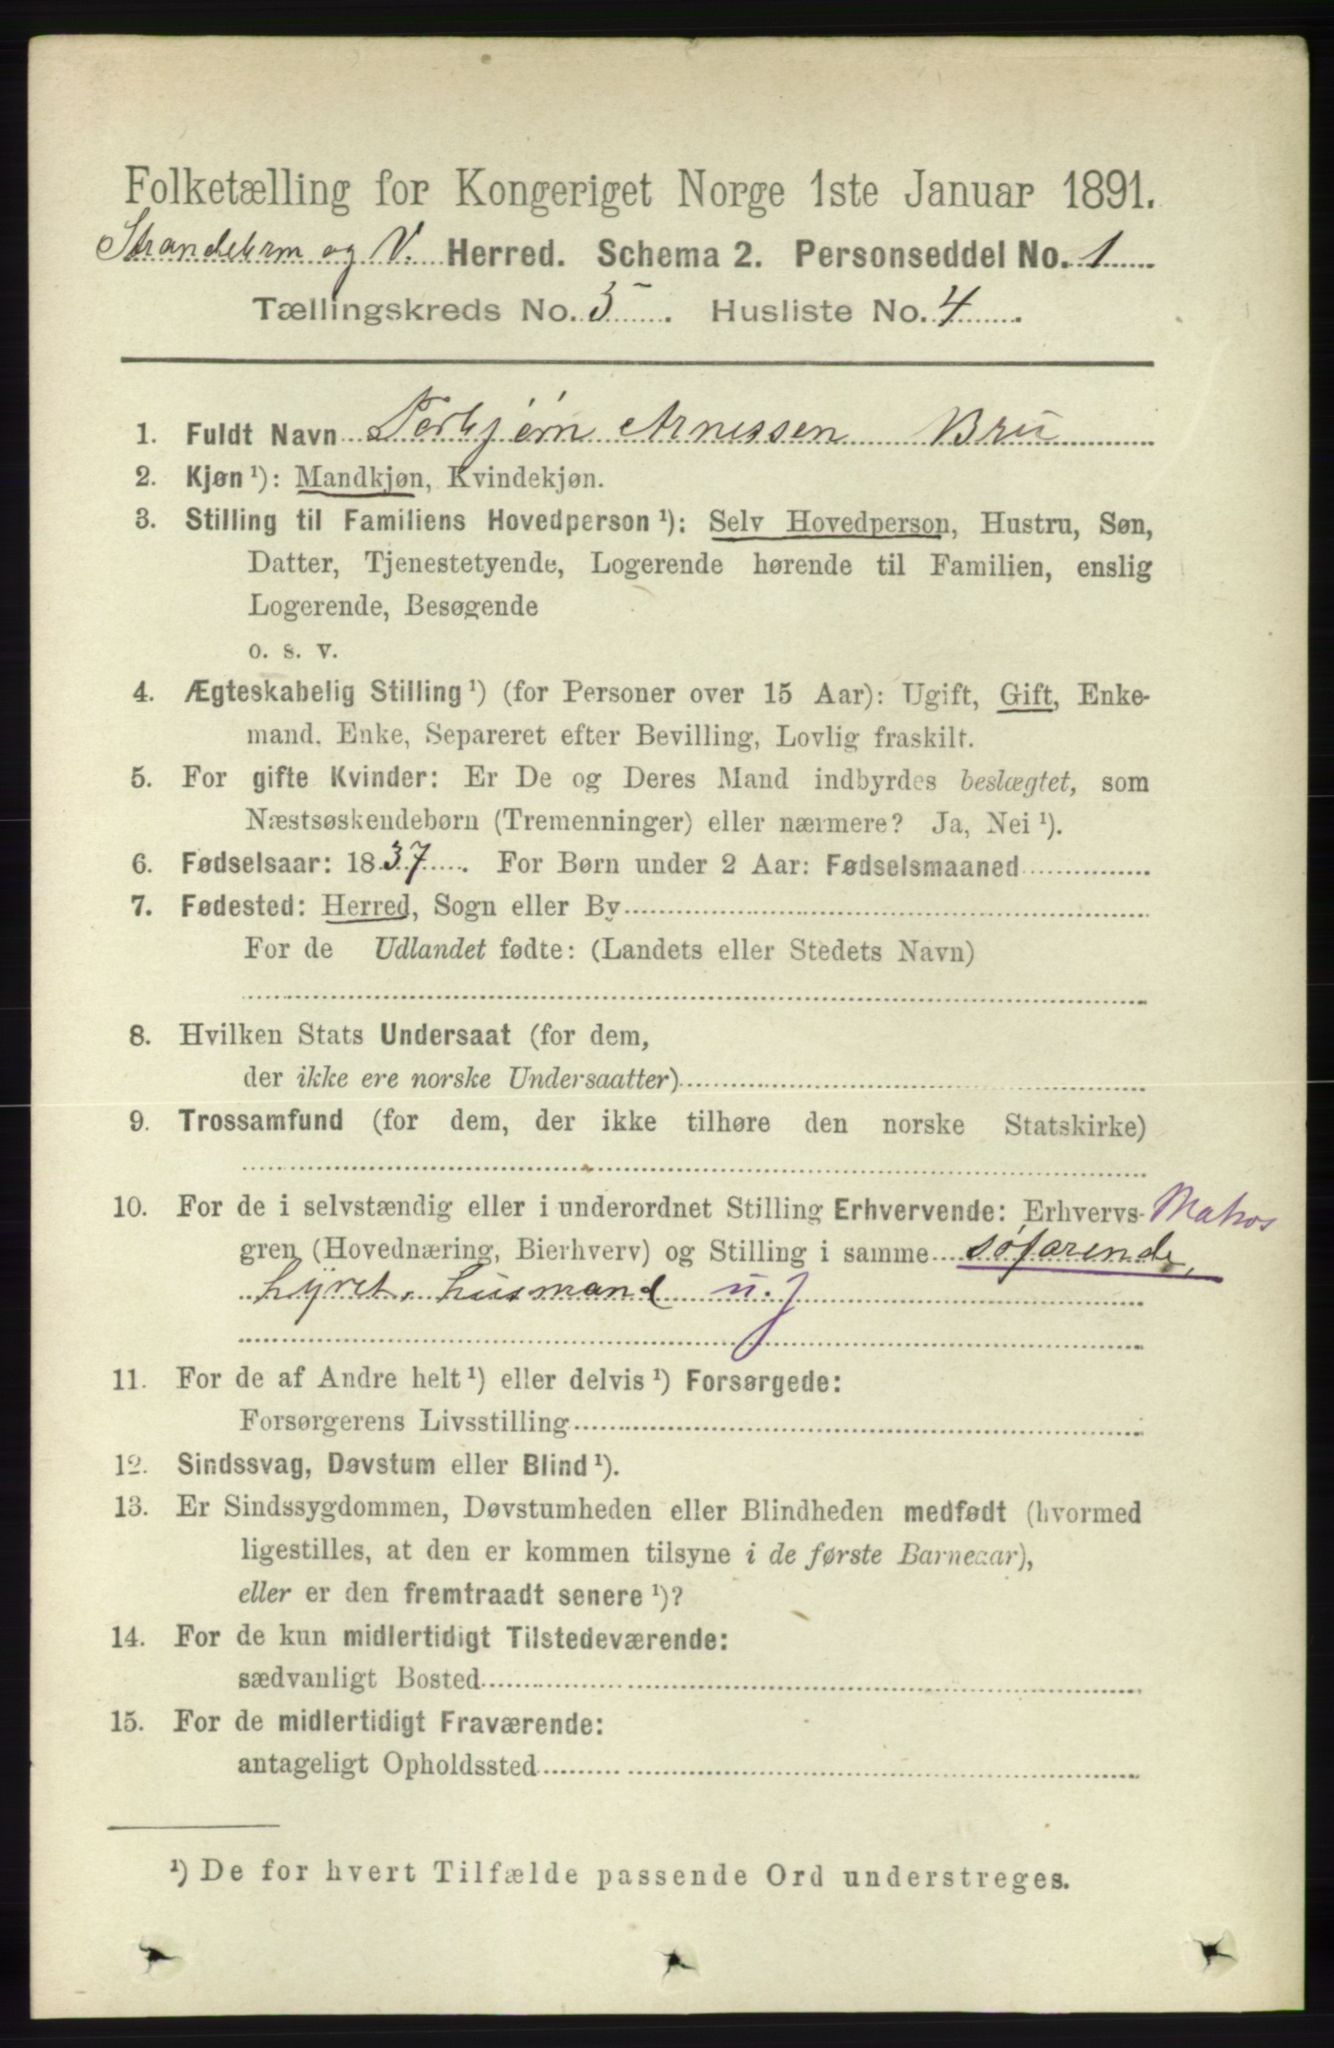 Folketælling for Kongeriget Norge 1ste Januar 1891.
Strandebrm og V. Herred. Schema 2. Personseddel No. 1
Tællingskreds No. 5. Husliste No. 4.
1. Fuldt Navn Torbjørn Arnessen Bru
2. Kjøn ¹): Mandkjøn, Kvindekjøn.
3. Stilling til Familiens Hovedperson ¹): Selv Hovedperson, Hustru, Søn,
Datter, Tjenestetyende, Logerende hørende til Familien, enslig
Logerende, Besøgende
o. s. v.
4. Ægteskabelig Stilling ¹) (for Personer over 15 Aar): Ugift, Gift, Enke-
mand, Enke, Separeret efter Bevilling, Lovlig fraskilt.
5. For gifte Kvinder: Er De og Deres Mand indbyrdes beslægtet, som
Næstsøskendebørn (Tremenninger) eller nærmere? Ja, Nei ¹).
6. Fødselsaar: 1837. For Børn under 2 Aar: Fødselsmaaned
7. Fødested: Herred, Sogn eller By
For de Udlandet fødte: (Landets eller Stedets Navn)
8. Hvilken Stats Undersaat (for dem,
der ikke ere norske Undersaatter)
9. Trossamfund (for dem, der ikke tilhøre den norske Statskirke)
10. For de i selvstændig eller i underordnet Stilling Erhvervende: Erhvervs- Matros
gren (Hovednæring, Bierhverv) og Stilling i samme søfarende,
hyret. husmand u. J
11. For de af Andre helt ¹) eller delvis ¹) Forsørgede:
Forsørgerens Livsstilling
12. Sindssvag, Døvstum eller Blind ¹).
13. Er Sindssygdommen, Døvstumheden eller Blindheden medfødt (hvormed
ligestilles, at den er kommen tilsyne i de første Barneaar),
eller er den fremtraadt senere ¹)?
14. For de kun midlertidigt Tilstedeværende:
sædvanligt Bosted
15. For de midlertidigt Fraværende:
antageligt Opholdssted
¹) De for hvert Tilfælde passende Ord understreges.